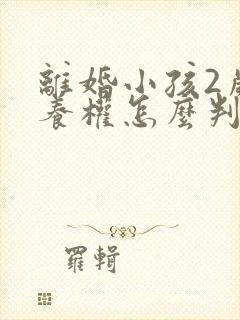 離婚小孩2歲
養權怎麼判
羅輯